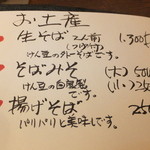 お土産
生そば 2人前 1,300
(つゆ付)
けん豆の外一そばです。
そばみそ (大) 500
けん豆の自家製 (小) 2
です。
揚げそば 250
パリパリと美味しです。